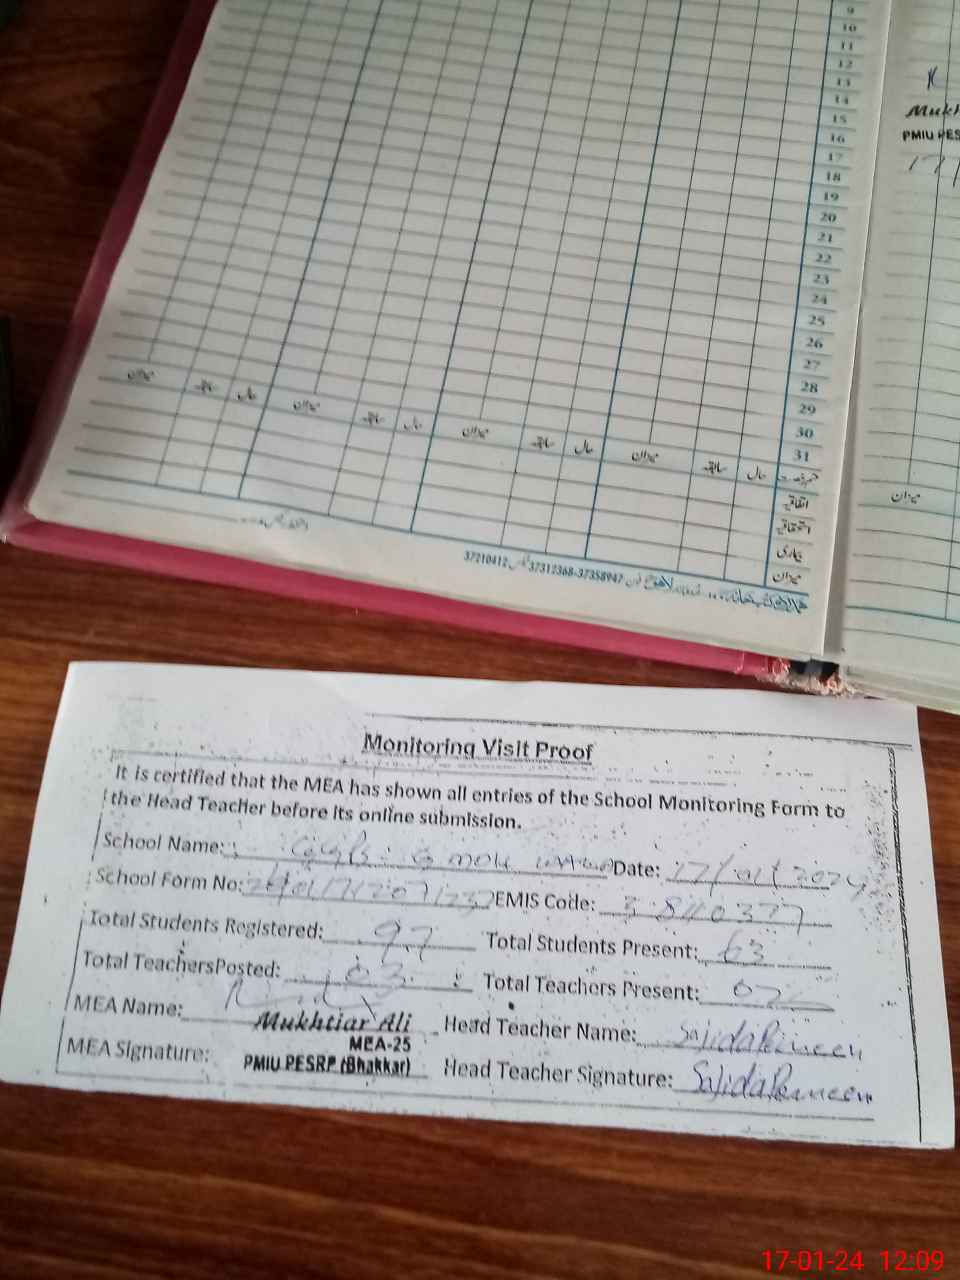 9
10
11
12
13
14
15
16
17
18
19
20
21
22
23
24
25
26
27
28
29
30
31
میزان سابقہ حال میزان سابقہ حال میزان سابقہ حال میزان سابقہ حال
اتفاقیہ
استحقاقیہ
بیماری
میزان
37210412 37312368-37358947
PMIU PES
میزان
Monitoring Visit Proof
It is certified that the MEA has shown all entries of the School Monitoring Form to
the Head Teacher before its online submission.
School Name: Date: 17/01/2024
School Form No: EMIS Code: 3 8110377
Total Students Registered: 97 Total Students Present: 63
Total TeachersPosted: 03 Total Teachers Present: 02
MEA Name: Mukhtiar Ali Head Teacher Name: Sajida Parveen
MEA-25
MEA Signature: PMIU PESRP (Bhakkar) Head Teacher Signature: Sajida Parveen
17-01-24 12:09